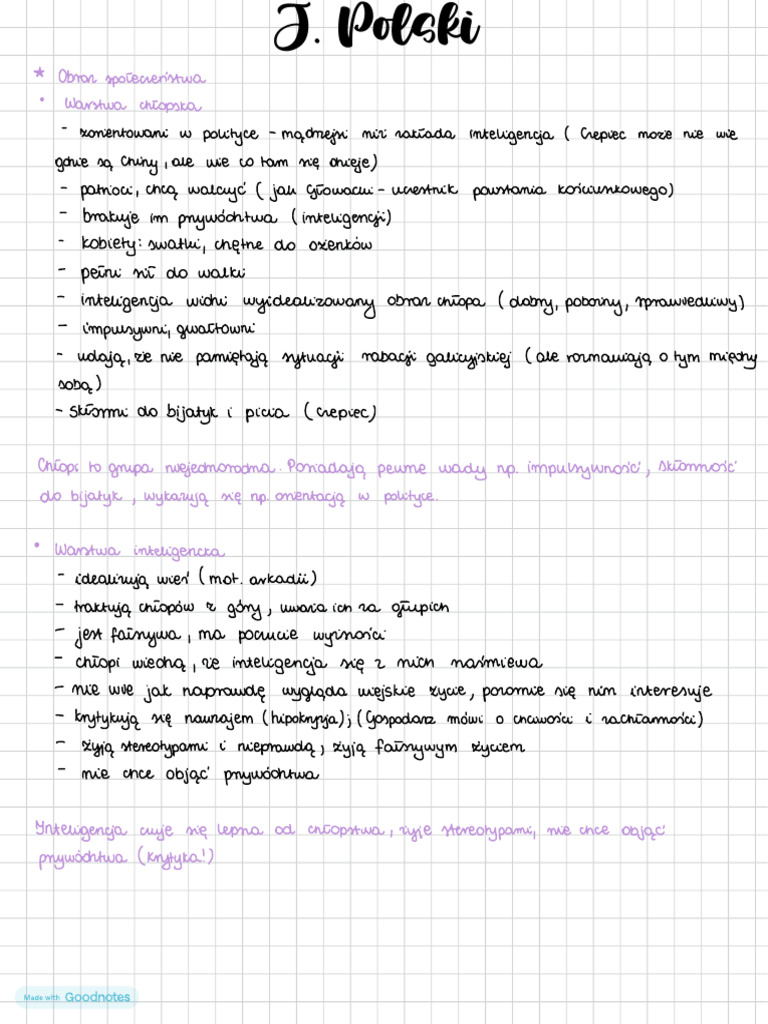 J. Polski
* Obraz społeczeństwa
• Warstwa chłopska
- zorientowani w polityce - mądrzejsi niż zakłada inteligencja ( Czepiec może nie wie
gdzie są Chiny, ale wie co tam się dzieje)
- patrioci, chcą walczyć ( jak Głowacki - uczestnik powstania kościuszkowego)
- brakuje im przywództwa ( inteligencji)
- kobiety: swatki, chętne do ożenków
- pełni sił do walki
- inteligencja widzi wyidealizowany obraz chłopa ( dobry, pobożny, sprawiedliwy)
- impulsywni, gwałtowni
- udają, że nie pamiętają sytuacji rabacji galicyjskiej ( ale rozmawiają o tym między
sobą)
- skłonni do bijatyk i picia ( Czepiec)
Chłopi to grupa niejednorodna. Posiadają pewne wady np. impulsywność, skłonność
do bijatyk, wykazują się np. orientacją w polityce.
• Warstwa inteligencka
- idealizują wieś ( mot. arkadii)
- traktują chłopów z góry, uważa ich za głupich
- jest fałszywa, ma poczucie wyższości
- chłopi wiedzą, że inteligencja się z nich naśmiewa
- nie wie jak naprawdę wygląda wiejskie życie, pozornie się nim interesuje
- krytykują się nawzajem (hipokryzja); (Gospodarz mówi o chciwości i zachłanności)
- żyją stereotypami i nieprawdą, żyją fałszywym życiem
- nie chce objąć przywództwa
Inteligencja czuje się lepsza od chłopstwa, żyje stereotypami, nie chce objąć
przywództwa (krytyka!)
Made with Goodnotes